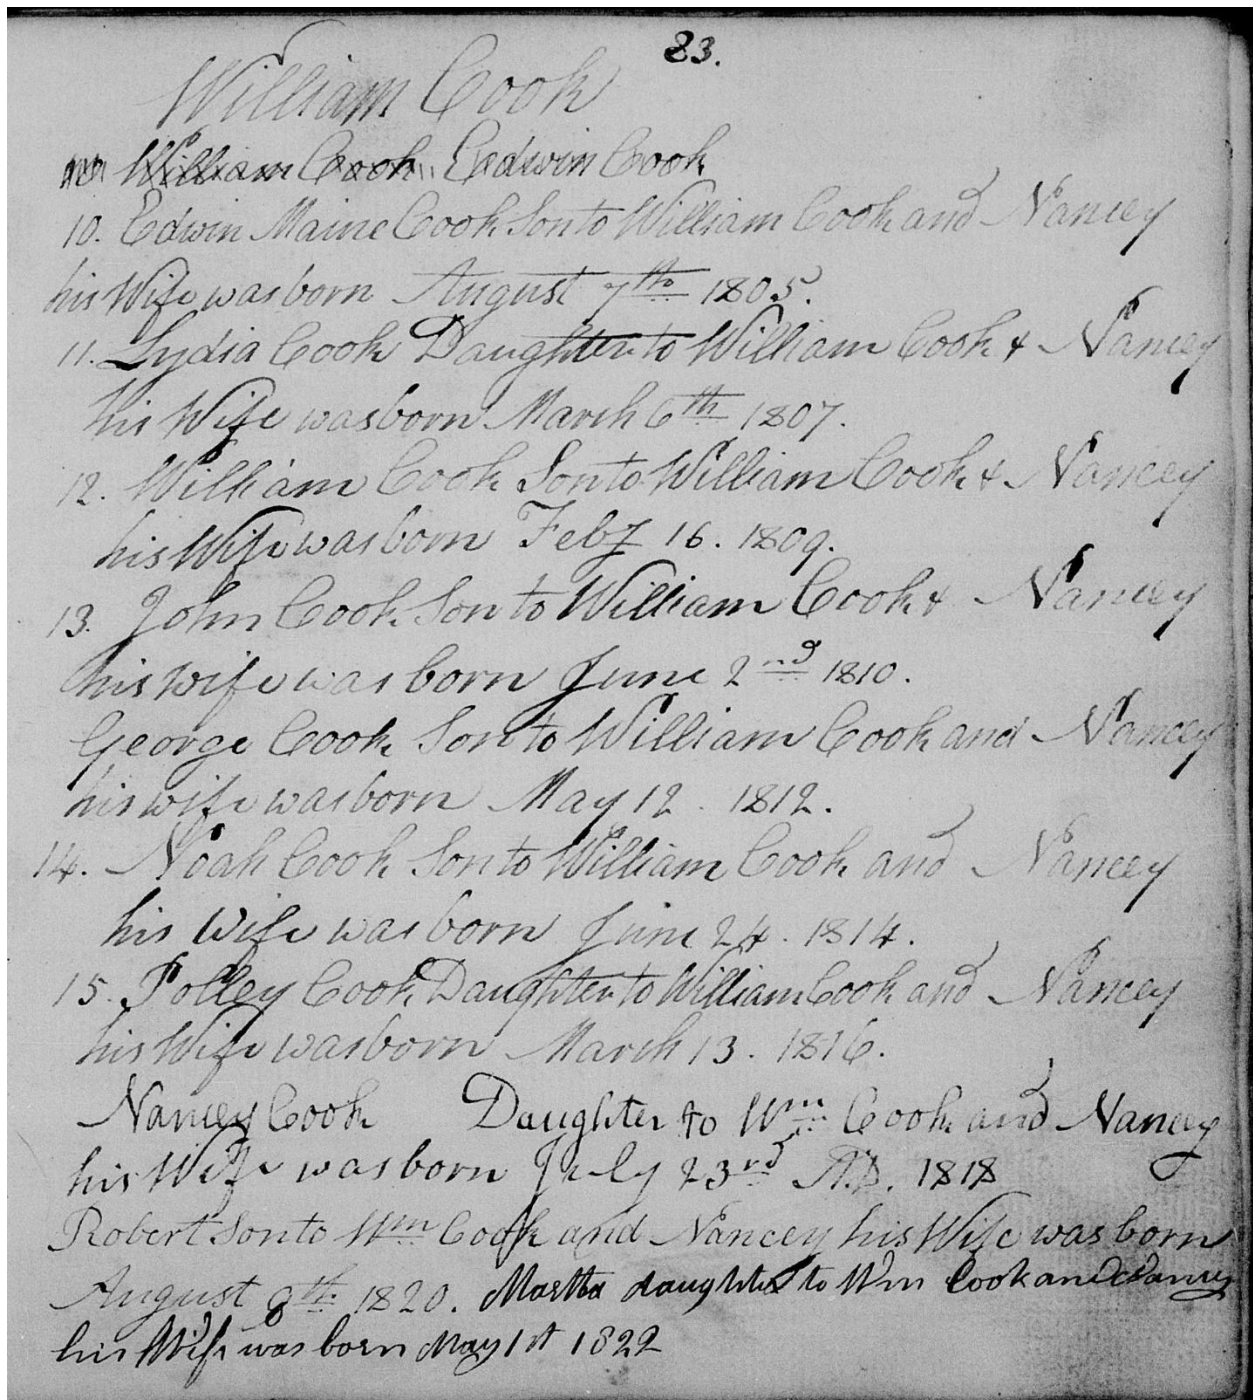 83.
William Cook
William Cook Edwin Cook
10. Edwin Maine Cook Son to William Cook and Nancey
his Wife was born August 7th 1805.
11. Lydia Cook Daughter to William Cook & Nancey
his Wife was born March 6th 1807.
12. William Cook Son to William Cook & Nancey
his Wife was born Feby 16. 1809.
13. John Cook Son to William Cook & Nancey
his wife was born June 2nd 1810.
George Cook Son to William Cook and Nancey
his wife was born May 12. 1812.
14. Noah Cook Son to William Cook and Nancey
his Wife was born June 24. 1814.
15. Polley Cook Daughter to William Cook and Nancey
his Wife was born March 13. 1816.
Nancey Cook Daughter to Wm Cook and Nancey
his Wife was born July 23rd A.D. 1818
Robert Son to Wm Cook and Nancey his Wife was born
August 8th 1820. Martha daughter to Wm Cook and Nancy
his Wife was born May 1st 1822